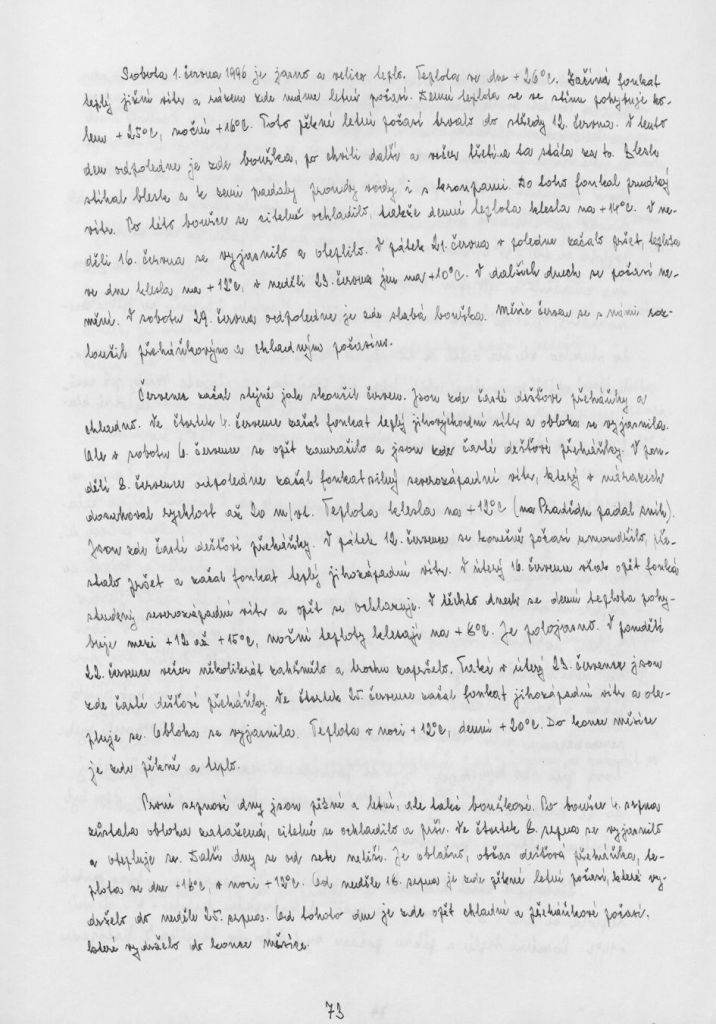 Sobota 1. června 1996 je jasno a velice teplo. Teplota ve dne +26°C. Začíná foukat
teplý jižní vítr a rázem zde máme letní počasí. Denní teplota se ve stínu pohybuje ko-
lem +25°C, noční +16°C. Toto pěkné letní počasí trvalo do středy 12. června. V tento
den odpoledne je zde bouřka, po chvíli další a večer třetina ta stála za to. Blesk
stíhal blesk a k zemi padaly proudy vody i s kroupami. Do toho foukal prudký
vítr. Po této bouřce se citelně ochladilo, takže denní teplota klesla na +14°C. V ne-
děli 16. června se vyjasnilo a oteplilo. V pátek 21. června v poledne začalo pršet, teplota
ve dne klesla na +12°C, v neděli 23. června jen na +10°C. V dalších dnech se počasí ne-
mění. V sobotu 29. června odpoledne je zde slabá bouřka. Měsíc červen se s námi roz-
loučil přeháňkovým a chladným počasím.
Červenec začal stejně jak skončil červen. Jsou zde časté dešťové přeháňky a
chladno. Ve čtvrtek 4. července začal foukat teplý jihovýchodní vítr a obloha se vyjasnila.
Ale v sobotu 6. července se opět zamračilo a jsou zde časté dešťové přeháňky. V pon-
dělí 8. července odpoledne začal foukat silný severozápadní vítr, který v nárazech
dosahoval rychlost až 20 m/vt. Teplota klesla na +12°C (na Pradědu padal sníh).
Jsou zde časté dešťové přeháňky. V pátek 12. července se konečně počasí umoudřilo, pře-
stalo pršet a začal foukat teplý jihozápadní vítr. V úterý 16. července však opět fouká
studený severozápadní vítr a opět se ochlazuje. V těchto dnech se denní teplota pohy-
buje mezi +12 až +15°C, noční teploty klesají na +8°C. Je polojasno. V pondělí
22. července večer několikrát zahřmělo a trochu zapršelo. Také v úterý 23. července jsou
zde časté dešťové přeháňky. Ve čtvrtek 25. července začal foukat jihozápadní vítr a ote-
pluje se. Obloha se vyjasnila. Teplota v noci +12°C, denní +20°C. Do konce měsíce
je zde pěkně a teplo.
První srpnové dny jsou pěkné a letní, ale také bouřkové. Po bouřce 4. srpna
zůstala obloha zatažená, citelně se ochladilo a prší. Ve čtvrtek 8. srpna se vyjasnilo
a otepluje se. Další dny se od sebe neliší. Je oblačno, občas dešťová přeháňka, te-
plota ve dne +18°C, v noci +12°C. Od neděle 18. srpna je zde pěkné letní počasí, které vy-
drželo do neděle 25. srpna. Od tohoto dne je zde opět chladné a přeháňkové počasí,
které vydrželo do konce měsíce.
73